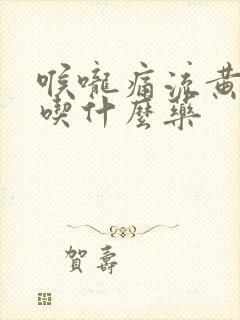 喉嚨痛流黃
喫什麼藥
賀壽